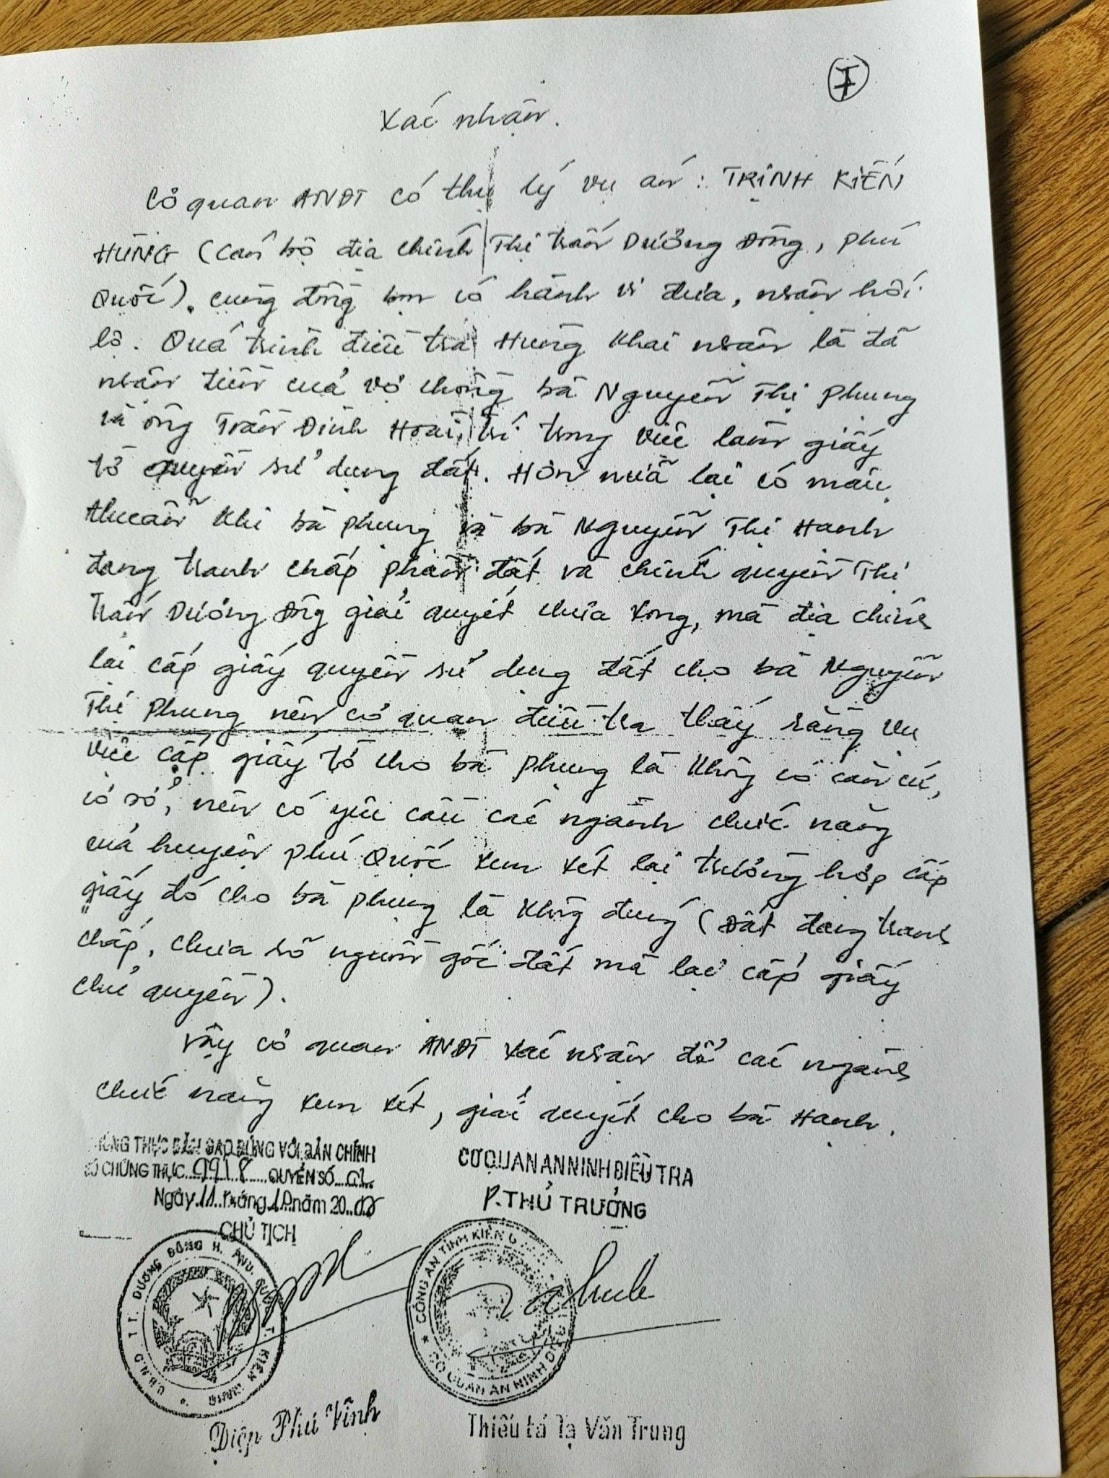 I
Xác nhận.
Cơ quan ANĐT có thụ lý vụ án: TRỊNH KIẾN
HÙNG (Cán bộ địa chính Thị trấn Dương Đông, Phú
Quốc). cùng đồng bọn có hành vi đưa, nhận hối
lộ. Quá trình điều tra Hùng khai nhận là đã
nhận tiền của vợ chồng bà Nguyễn Thị Phụng
và ông Trần Đình Hoài, trong việc làm giấy
tờ quyền sử dụng đất. Hơn nữa lại có mâu
thuẫn khi bà Phụng và bà Nguyễn Thị Hạnh
đang tranh chấp phần đất và chính quyền Thị
trấn Dương Đông giải quyết chưa xong, mà địa chính
lại cấp giấy quyền sử dụng đất cho bà Nguyễn
Thị Phụng nên cơ quan điều tra thấy rằng vụ
việc cấp giấy tờ cho bà Phụng là không có căn cứ,
cơ sở, nên có yêu cầu các ngành chức năng
của huyện Phú Quốc xem xét lại trường hợp cấp
giấy đó cho bà Phụng là không đúng (Đất đang tranh
chấp, chưa rõ nguồn gốc đất mà lại cấp giấy
chủ quyền).
Vậy cơ quan ANĐT xác nhận để các ngành
chức năng xem xét, giải quyết cho bà Hạnh.
CHỨNG THỰC BẢN SAO ĐÚNG VỚI BẢN CHÍNH
SỐ CHỨNG THỰC 9918 QUYỂN SỐ 01
Ngày 11 tháng 10 năm 20
CHỦ TỊCH
U.B.N.D T.T. DƯƠNG ĐÔNG H. PHÚ QUỐC T. KIÊN GIANG
Diệp Phú Vĩnh
CƠ QUAN AN NINH ĐIỀU TRA
P. THỦ TRƯỞNG
CÔNG AN TỈNH KIÊN G
CƠ QUAN AN NINH Đ
Thiếu tá Tạ Văn Trung